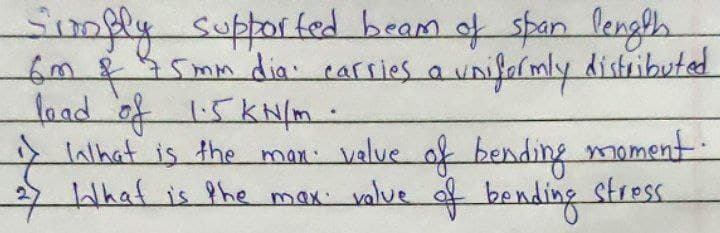 Simply supported beam of span length
6m & 75mm dia. carries a uniformly distributed
load of 1.5 KN/m.
1) What is the max. value of bending moment.
2) What is the max. value of bending stress